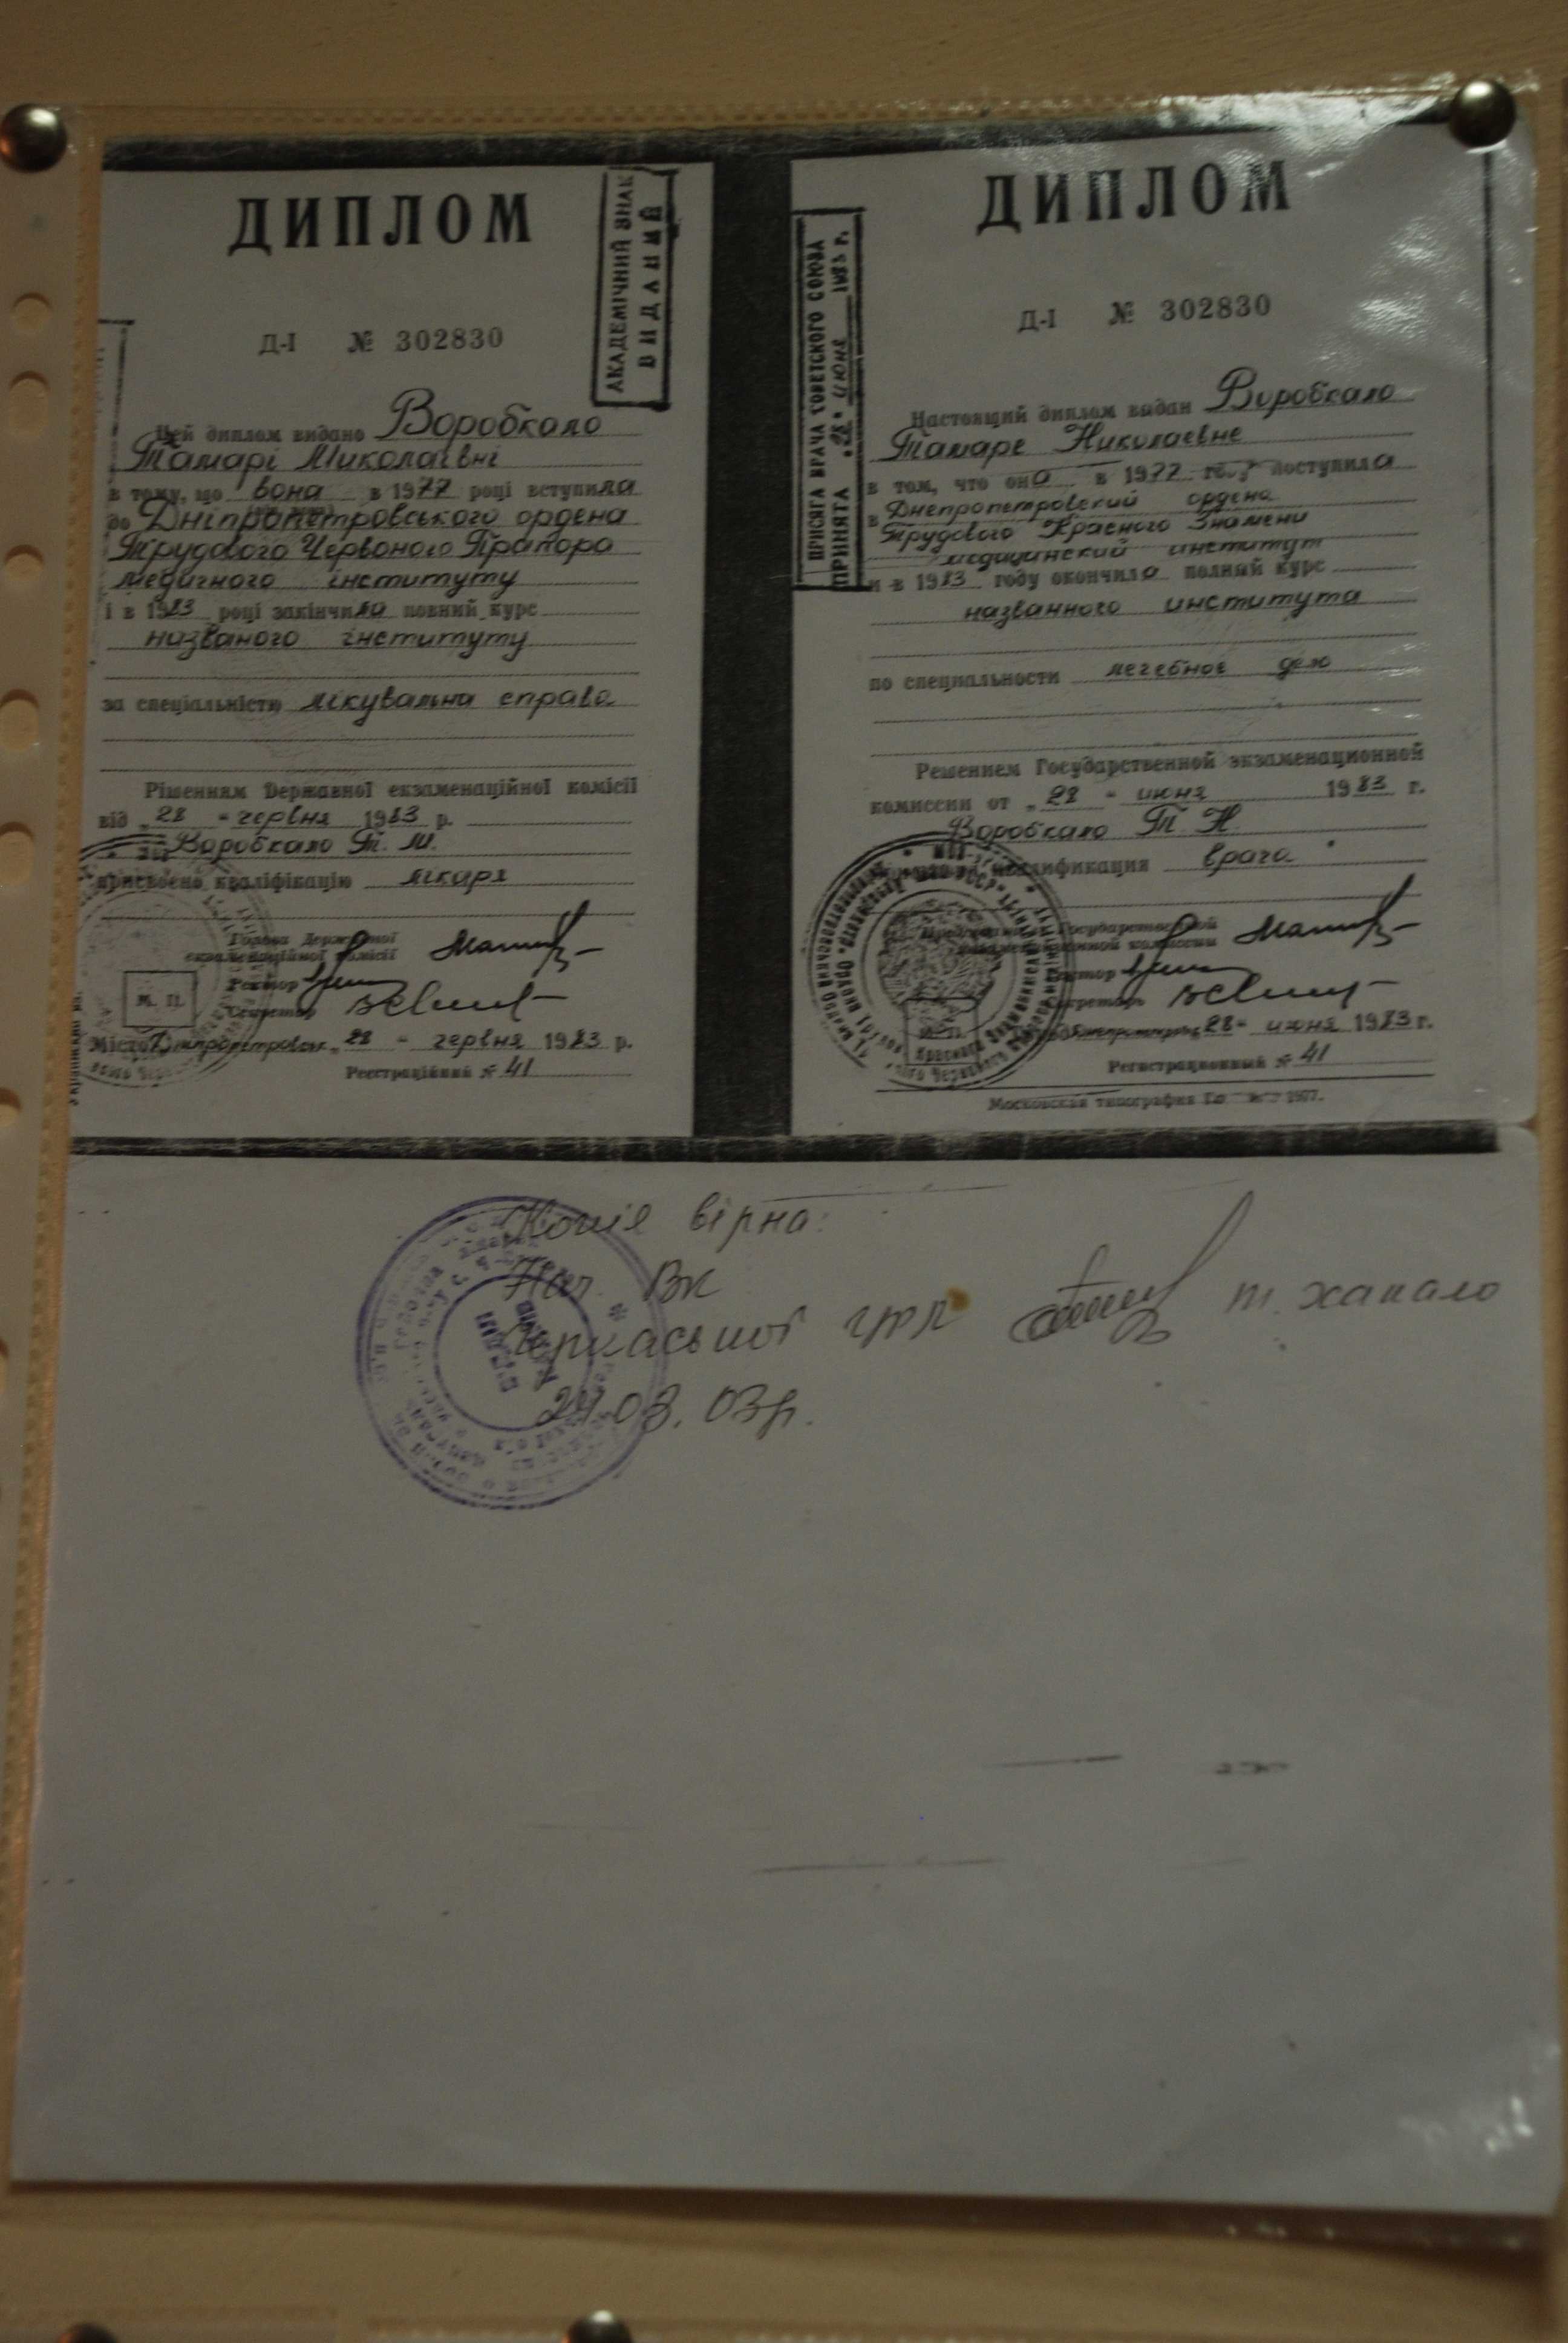 ДИПЛОМ
АКАДЕМІЧНИЙ ЗНАК
ВИДАНИЙ
Д-І № 302830
Цей диплом видано Воробкало
Тамарі Миколаївні
в тому, що вона в 1977 році вступила
до Дніпропетровського ордена
Трудового Червоного Прапора
медичного інституту
і в 1983 році закінчила повний курс
названого інституту
за спеціальністю лікувальна справа
Рішенням Державної екзаменаційної комісії
від „28 " червня 1983 р.
Воробкало Т. М.
присвоєно кваліфікацію лікаря
Голова Державної
екзаменаційної комісії
Ректор
Секретар
М. П.
Місто Дніпропетровськ „28 " червня 1983 р.
Реєстраційний № 41
ДИПЛОМ
ПРИСЯГА ВРАЧА СОВЕТСКОГО СОЮЗА
ПРИНЯТА „28" июня 1983 г.
Д-І № 302830
Настоящий диплом выдан Воробкало
Тамаре Николаевне
в том, что она в 1977 поступила
в Днепропетровский ордена
Трудового Красного Знамени
медицинский институт
и в 1983 году окончила полный курс
названного института
по специальности лечебное дело
Решением Государственной экзаменационной
комиссии от „28 " июня 1983 г.
Воробкало Т. Н.
квалификация врача
Председатель Государственной
экзаменационной комиссии
Ректор
Секретарь
М. П.
28 " июня 1983 г.
Регистрационный № 41
Московская типография 1977.
Копія вірна:
Нач. ВК
Черкаської т. хапало
03р.